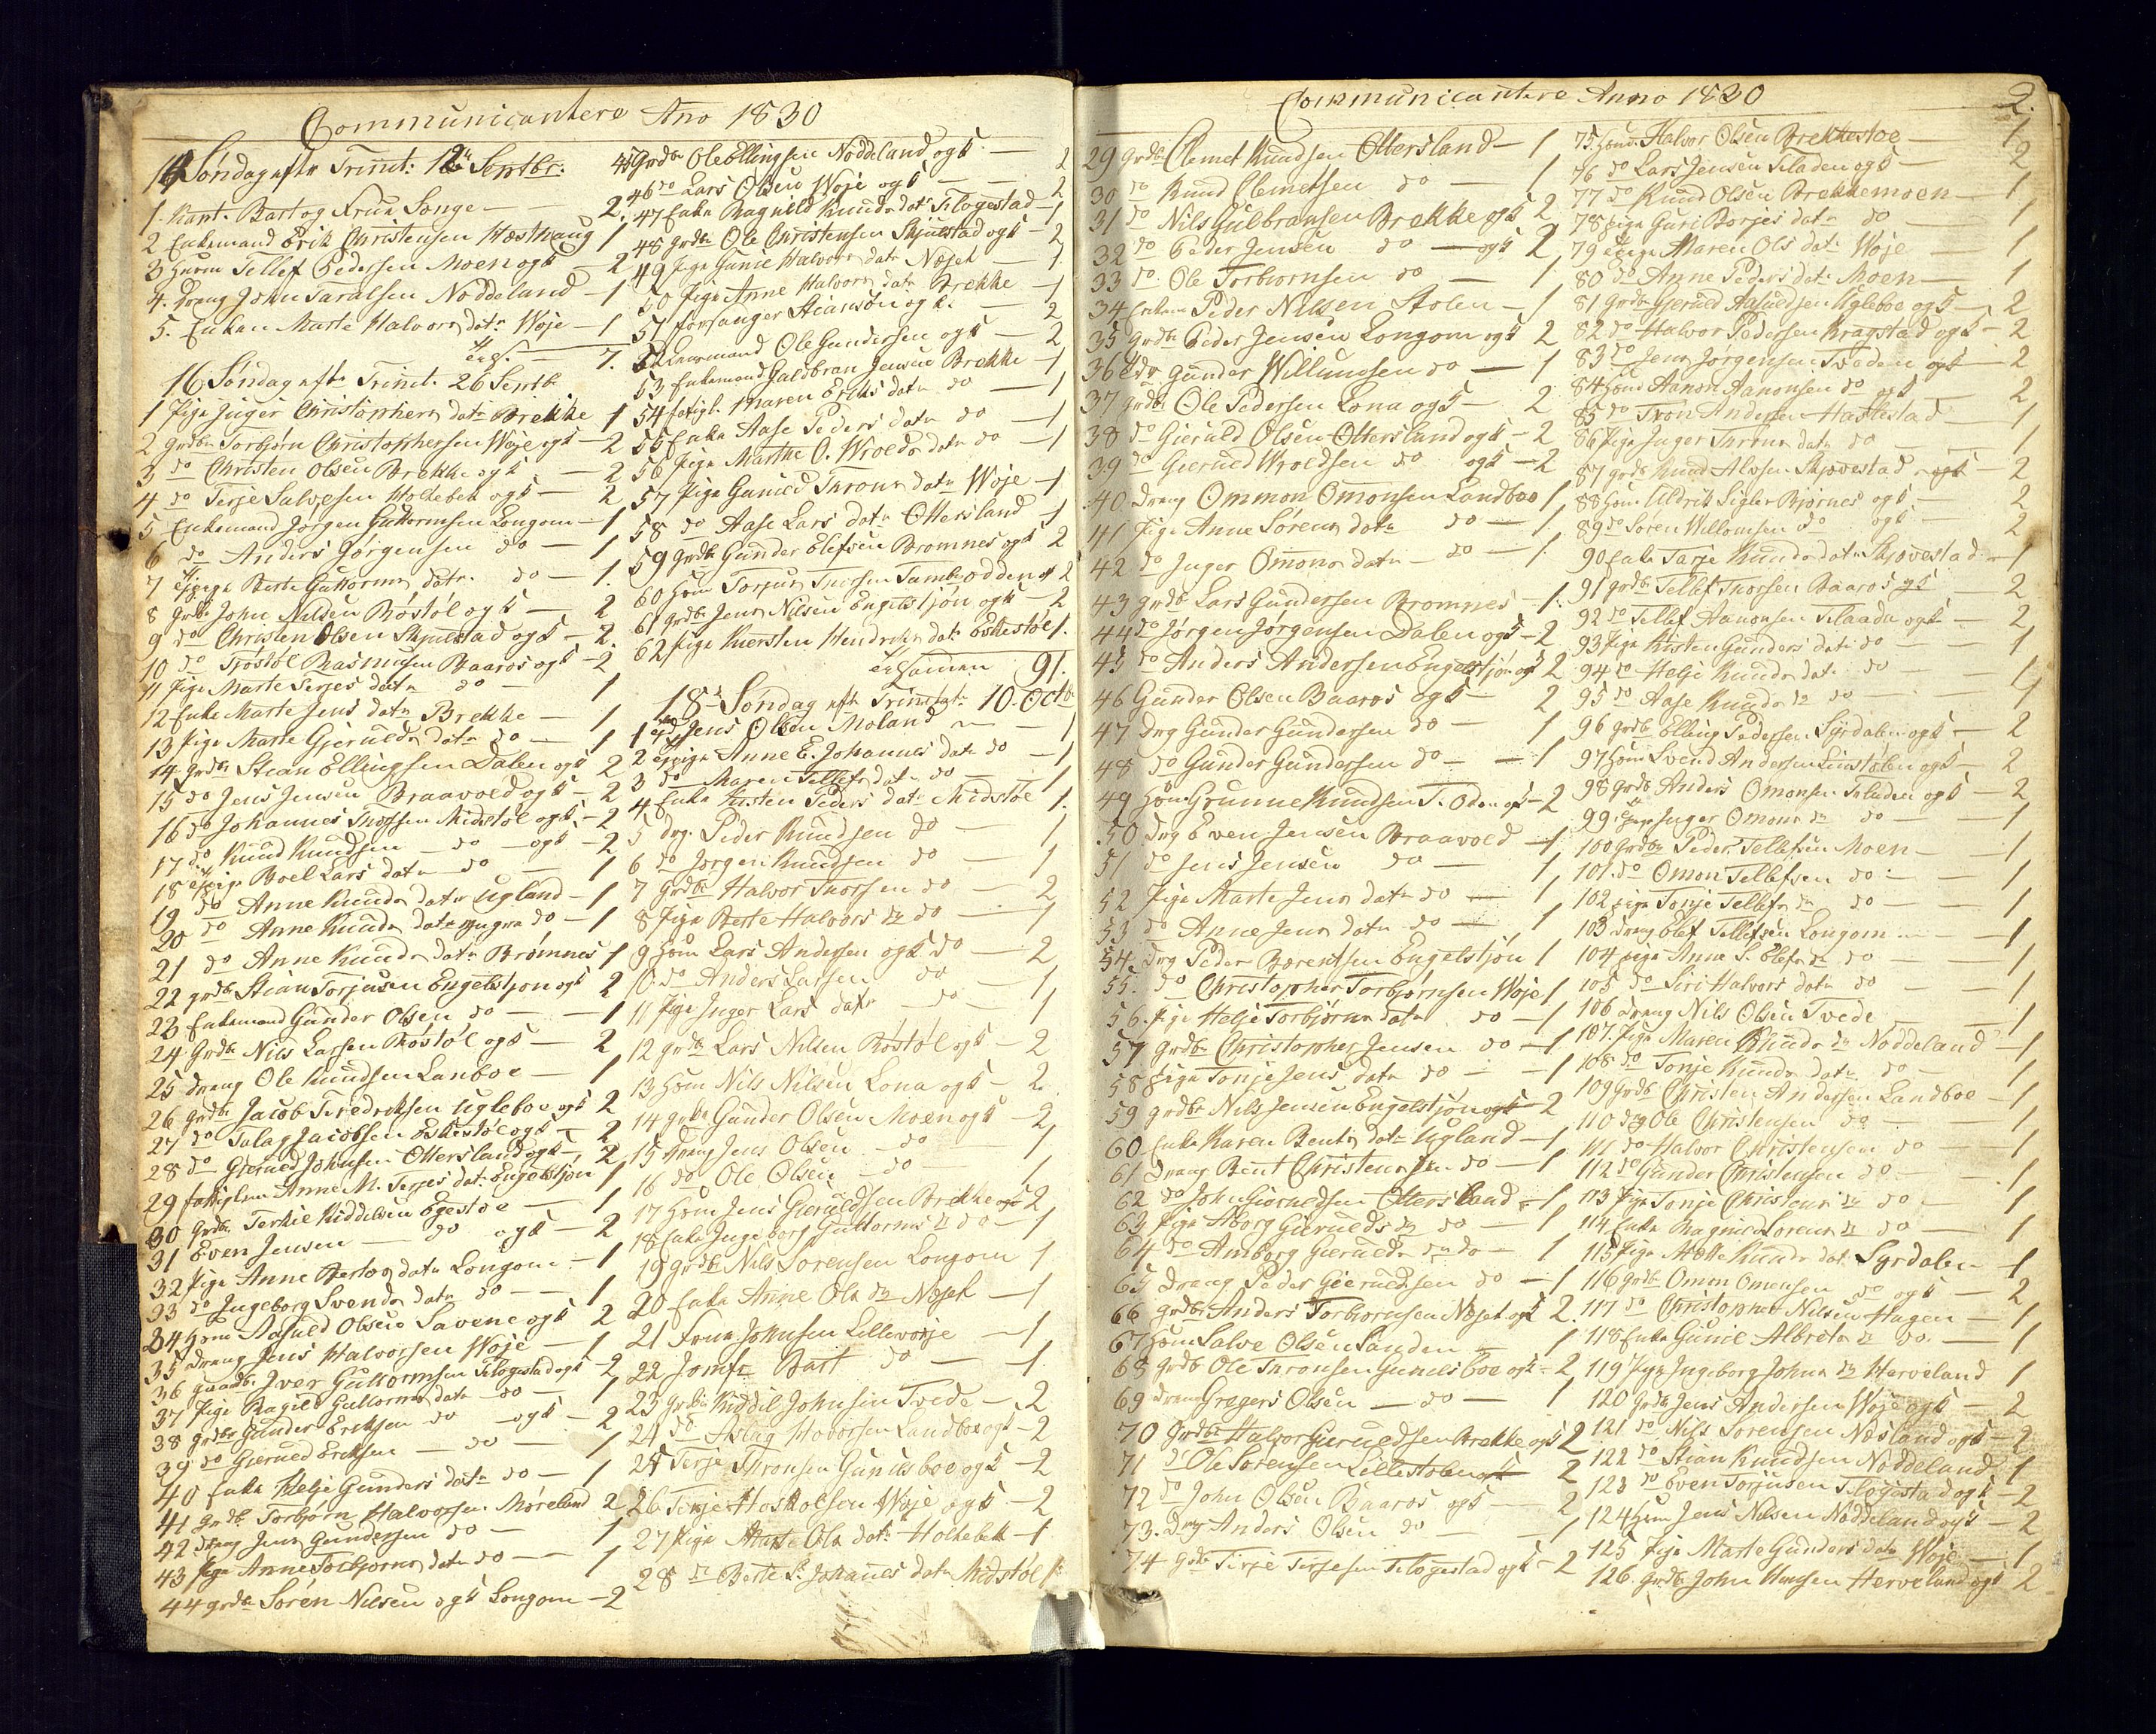 Communicantere Ano 1830
14 Søndag efter Trinit: 12te Septbr:
1. Kapt. Bart og Frue Songe — 2.
2 Enkemand Erik Christensen Hæsthaug 1
3 Huusm Tellef Pedersen Moen ogk — 2
4. Dreng John Taralsen Noddeland — 1
5. Enken Marte Halvors datr Woje — 1
7.
16 Søndag eftr Trinit. 26 Septb.
1 Pige Inger Christophers datr Brekke 1
2 Grdbr Torbjørn Christophersen Woje ogk — 2
3 do Christen Olsen Brekke ogk — 2
4 do Terje Salvesen Holtebek ogk — 2
5 Enkemand Jørgen Guttormsen Longom — 1
6 do Anders Jørgensen do — 1
7 Pige Berte Guttorms datr do — 1.
8 Grdbr John Nilsen Røstøl ogk — 2
9 do Christen Olsen Skjulestad ogk — 2.
10 do Tjøstøl Rasmusen Baaros ogk — 2
11 Pige Marte Terjes datr do — 1
12 Enke Marte Jens datr Brekke — 1
13 Pige Marte Gjerulds datr do — 1
14 Grdbr Stian Ellingsen Dalen ogk 2
15 do Jens Jensen Braavold ogk — 2
16 do Johannes Thorsen Midstøl ogk — 2
17 do Knud Knudsen — do — ogk — 2
18 Pige Boel Lars datr do — 1
19 do Anne Knuds datr Ugland — 1
20 do Anne Knuds datr yngre do — 1
21 do Anne Knuds datr Brømnes 1
22 grdbr Stian Torjusen Engelstjøn ogk 2
23 Enkemand Gunder Olsen do — 1
24 Grdbr Nils Larsen Røstøl ogk — 2
25 Dreng Ole Knudsen Lanboe — 1
26 Grdbr Jacob Fredriksen Ugleboe ogk 2
27 do Aslag Jacobsen Eskestøl ogk — 2
28 do Gjeruld Johnsen Ottersland ogk — 2
29 fattiglem Anne M. Terjes datr Engelstjøn 1
30 Grdbr Terkil Kiddelsen Egestøe — 1
31 Even Jensen — do ogk — 2
32 Pige Anne Bertos datr Longom — 1
33 do Ingeborg Svends datr do — 1
34 Huusm Aasuld Olsen Savene ogk 2
35 Dreng Jens Halvorsen Woje — 1
36 Gaardbr Iver Guttormsen Telogestad ogk — 2
37 Pige Ragild Guttorms datr do — 1
38 Grdbr Gunder Eriksen do — ogk — 2
39 do Gjeruld Eriksen — do — 1
40 Enke Helje Gunders datr do — 1
41 Grdbr Torbjørn Halvorsen Møreland 2
42 Dreng Jens Gundersen do — 1
43 Pige Anne Torbjørns datr do — 1
44 grdbr Søren Nilsen ogk Longom — 2
45 Grdbr Ole Ellingsen Noddeland ogk — 2
46 do Lars Olsen Woje ogk — 2
47 Enke Ragnild Knuds datr Telogestad — 1
48 Grdbr Ole Christensen Skjulestad ogk — 2
49 Pige Gunil Halvors datr Næset — 1
50 Pige Anne Halvors datr Brekke — 1
51 forsanger Stiansøn ogk. — 2
52 Enkemand Ole Gundersen ogk — 2
53 Enkemand Guldbran Jensen Brekke — 1
54 fatigl. Maren Eriks datr do — 1
55 Enke Aase Peders datr do — 1
56 Pige Marthe O. Wroldsdatr do — 1
57 Pige Gunild Throns datr Woje — 1
58 do Aase Lars datr Ottersland — 1
59 Grdbr Gunder Elefsen Bromnes ogk 2
60 Huusm Torjus Thorsen Tambeodden ogk 2
61 grdbr Jens Nilsen Engelstjøn ogk — 2
62 Pige Kiersten Hendriks datr Eskestøl 1.
Tilsamen 91.
18de Søndag eftr Trinitatis 10. Octb
1 Jens Olsen Moland — 1
2 Pige Anne E. Johannes datr do — 1
3 do Maren Tellefs datr do — 1
4 Enke Kirsten Peders datr Midstøl 1.
5 drg. Peder Knudsen do — 1
6 do Jørgen Knudsen do — 1
7 Grdbr Halvor Thorsen do — 2
8 Pige Berte Halvors dr do — 1
9 Huusm Lars Andersen ogk do — 2
10 do Anders Larsen do — 1
11 Pige Inger Lars datr do — 1
12 grdbr Lars Nilsen Røstøl ogk — 2
13 Huusm Nils Nilsen Lona ogk — 2.
14 grdbr Gunder Olsen Moen ogk — 2
15 Dreng Jens Olsen do — 1
16 do Ole Olsen do — 1
17 Huusm Jens Gjeruldsen Brekke ogk 2
18 Enke Ingeborg Guttorms dr do — 1
19 Grdbr Nils Sørensen Longom 1
20 Enke Anne Ols dr Næset — 1
21 Frue Johnsen Lillewoje — 1
22 Jomfr Bart do — 1
23 Grdbr Kiddil Johnsen Tvede — 2
24 do Aslag Hovorsen Landboe ogk — 2
25 Terje Thronsen Gunilsboe ogk — 2
26 Terje Hoskolsen Woje ogk — 2
27 Pige Marte Ols datr Holtebek — 1
28 do Berte S. Johanes datr Midstøl 1.
Communicantere Anno 1830
2.
29 Grdbr Clemet Knudsen Ottersland — 1
30 do Knud Clemetsen do — 1
31 do Nils Gulbransen Brekke ogk 2
32 do Peder Jensen do — ogk 2
33 do Ole Torbiornsen do — 1
34 Enkem Peder Nilsen Stolen — 1
35 Grdbr Peder Jensen Longom ogk 2
36 Gunder Willumsen do — 1
37 Grdbr Ole Pedersen Lona ogk — 2
38 do Gieruld Olsen Ottersland ogk — 2
39 do Gieruld Wroldsen do ogk — 2
40 Dreng Ommon Omonsen Landboe 1
41 Pige Anne Sørens datr do — 1
42 do Inger Omons datr do — 1
43 grdbr Lars Gundersen Bromnes — 1.
44 do Jørgen Jørgensen Dalen ogk — 2
45 do Anders Andersen Engelstjøn ogk 2
46 Gunder Olsen Baaros ogk — 2
47 Drg Gunder Gundersen do — 1
48 do Gunder Gundersen do — 1
49 Huusm Grunne Knudsen T. Oden ogk — 2
50 Drg Even Jensen Braavold — 1
51 do Jens Jensen do — 1
52 Pige Marte Jens datr do — 1
53 do Anne Jens datr do — 1
54 Drg Peder Berentsen Engelstjøn 1
55. do Christopher Torbjørnsen Woje 1
56. Pige Helje Torbjørns datr do — 1
57 Grdbr Christopher Jensen do — 1
58 Pige Tonje Jens datr do — 1
59 grdbr Nils Jensen Engelstjøn ogk — 2
60 Enke Karen Bents datr Ugland — 1
61 Dreng Bent Christensen do — 1
62 do John Gieruldsen Ottersland — 1
63 Pige Aborg Gierulds dr do — 1
64 do Amborg Gierulds dr do — 1
65 Dreng Peder Gieruldsen do — 1
66 Grdbr Anders Torbiornsen Næset ogk 2.
67 Huusm Salve Olsen Sanden — 1
68 Grdbr Ole Thronsen Gunilsboe ogk — 2
69 Dreng Gregers Olsen — do — 1
70 Grdbr Halvor Gieruldsen Brekke ogk 2
71 do Ole Sørensen Lillestolen ogk 2
72 do John Olsen Baaros ogk — 2
73. Drg Anders Olsen do — 1
74 Grdbr Terje Terjesen Telogestad ogk — 2
75. Huusm Halvor Olsen Brekkestoe — 1
76 do Lars Jensen Feladen ogk — 2
77 do Knud Olsen Brekkemoen — 1
78 Pige Guri Børjes datr do — 1
79 Pige Maren Ols datr Woje — 1
80 do Anne Peders datr Moen — 1
81 Grdbr Gjeruld Aasuldsen Ugleboe ogk — 2
82 do Halvor Pedersen Kragstad ogk — 2
83 do Jens Jørgensen Tveden ogk — 2
84 Huusm Aanon Aanonsen do ogk — 2
85 do Tron Andersen Hastestad — 1
86 Pige Inger Throns datr do — 1
87 grdbr Knud Alvsen Skjøvestad ogk — 2
88 Huusm Uldrik Sigler Bjørnes ogk — 2
89 do Søren Willomsen do ogk — 2
90 Enke Tarje Knuds datr Skjøvestad — 1
91 grdbr Tellef Thorsen Baaros ogk — 2
92 do Tellef Aanonsen Tilaadn ogk — 2
93 Pige Kirsten Gunders datr do — 1
94 do Helje Knuds datr do — 1
95 do Aase Knuds dr do — 1
96 grdbr Elling Pedersen Syrdalen ogk — 2
97 Huusm Svend Andersen Linstølen ogk — 2
98 Grdbr Anders Omonsen Feladen ogk — 2
99. Pige Inger Omons dr do — 1
100 Grdbr Peder Tellefsen Moen — 1
101. do Omon Tellefsen do — 1
102 Pige Tonje Tellefs dr do — 1
103 Dreng Elef Tellefsen Longom — 1
104 Pige Anne S. Elefs dr do — 1
105 do Siri Halvors datr do — 1
106 Dreng Nils Olsen Tvede — 1
107. Pige Maren Knuds dr Noddeland — 1
108 do Tonje Knuds datr do — 1
109 Grdbr Christen Andersen Landboe — 1
110 drg Ole Christensen do — 1
111 do Halvor Christensen do — 1
112 do Gunder Christensen do — 1
113 Pige Tonje Christens dr do — 1
114 Enke Ragnild Lorens dr do — 1
115 Pige Mette Knuds datr Syrdalen — 1
116 Grdbr Omon Omonsen do ogk — 2
117 do Christopher Nilsen Hagen — 1
118 Enke Gunil Albrets dr do. — 1
119 Pige Ingeborg Johns dr Herveland 1
120 Grdbr Jens Andersen Woje ogk — 2
121 do Nils Sørensen Næsland ogk — 2
122 do Stian Knudsen Noddeland 1
123 do Even Torjusen Telogestad ogk — 2
124 Huusm Jens Nilsen Noddeland ogk — 2
125 Pige Marte Gunders datr Woje — 1
126. Grdbr John Hansen Herveland ogk 2